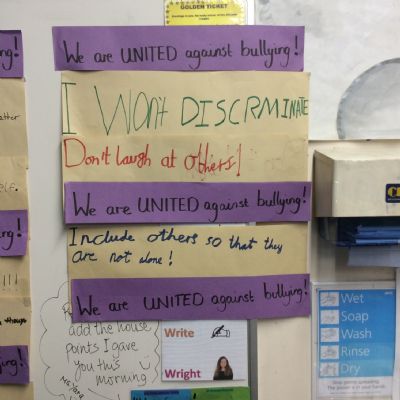 GOLDEN TICKET
We are UNITED against bullying!
I Won't DISCRMINATE
Don't laugh at others!
We are UNITED against bullying!
Include others so that they
are not alone!
We are UNITED against bullying!
add the house
points I gave
you this
morning
Write
Wright
Wet
Soap
Wash
Rinse
Dry